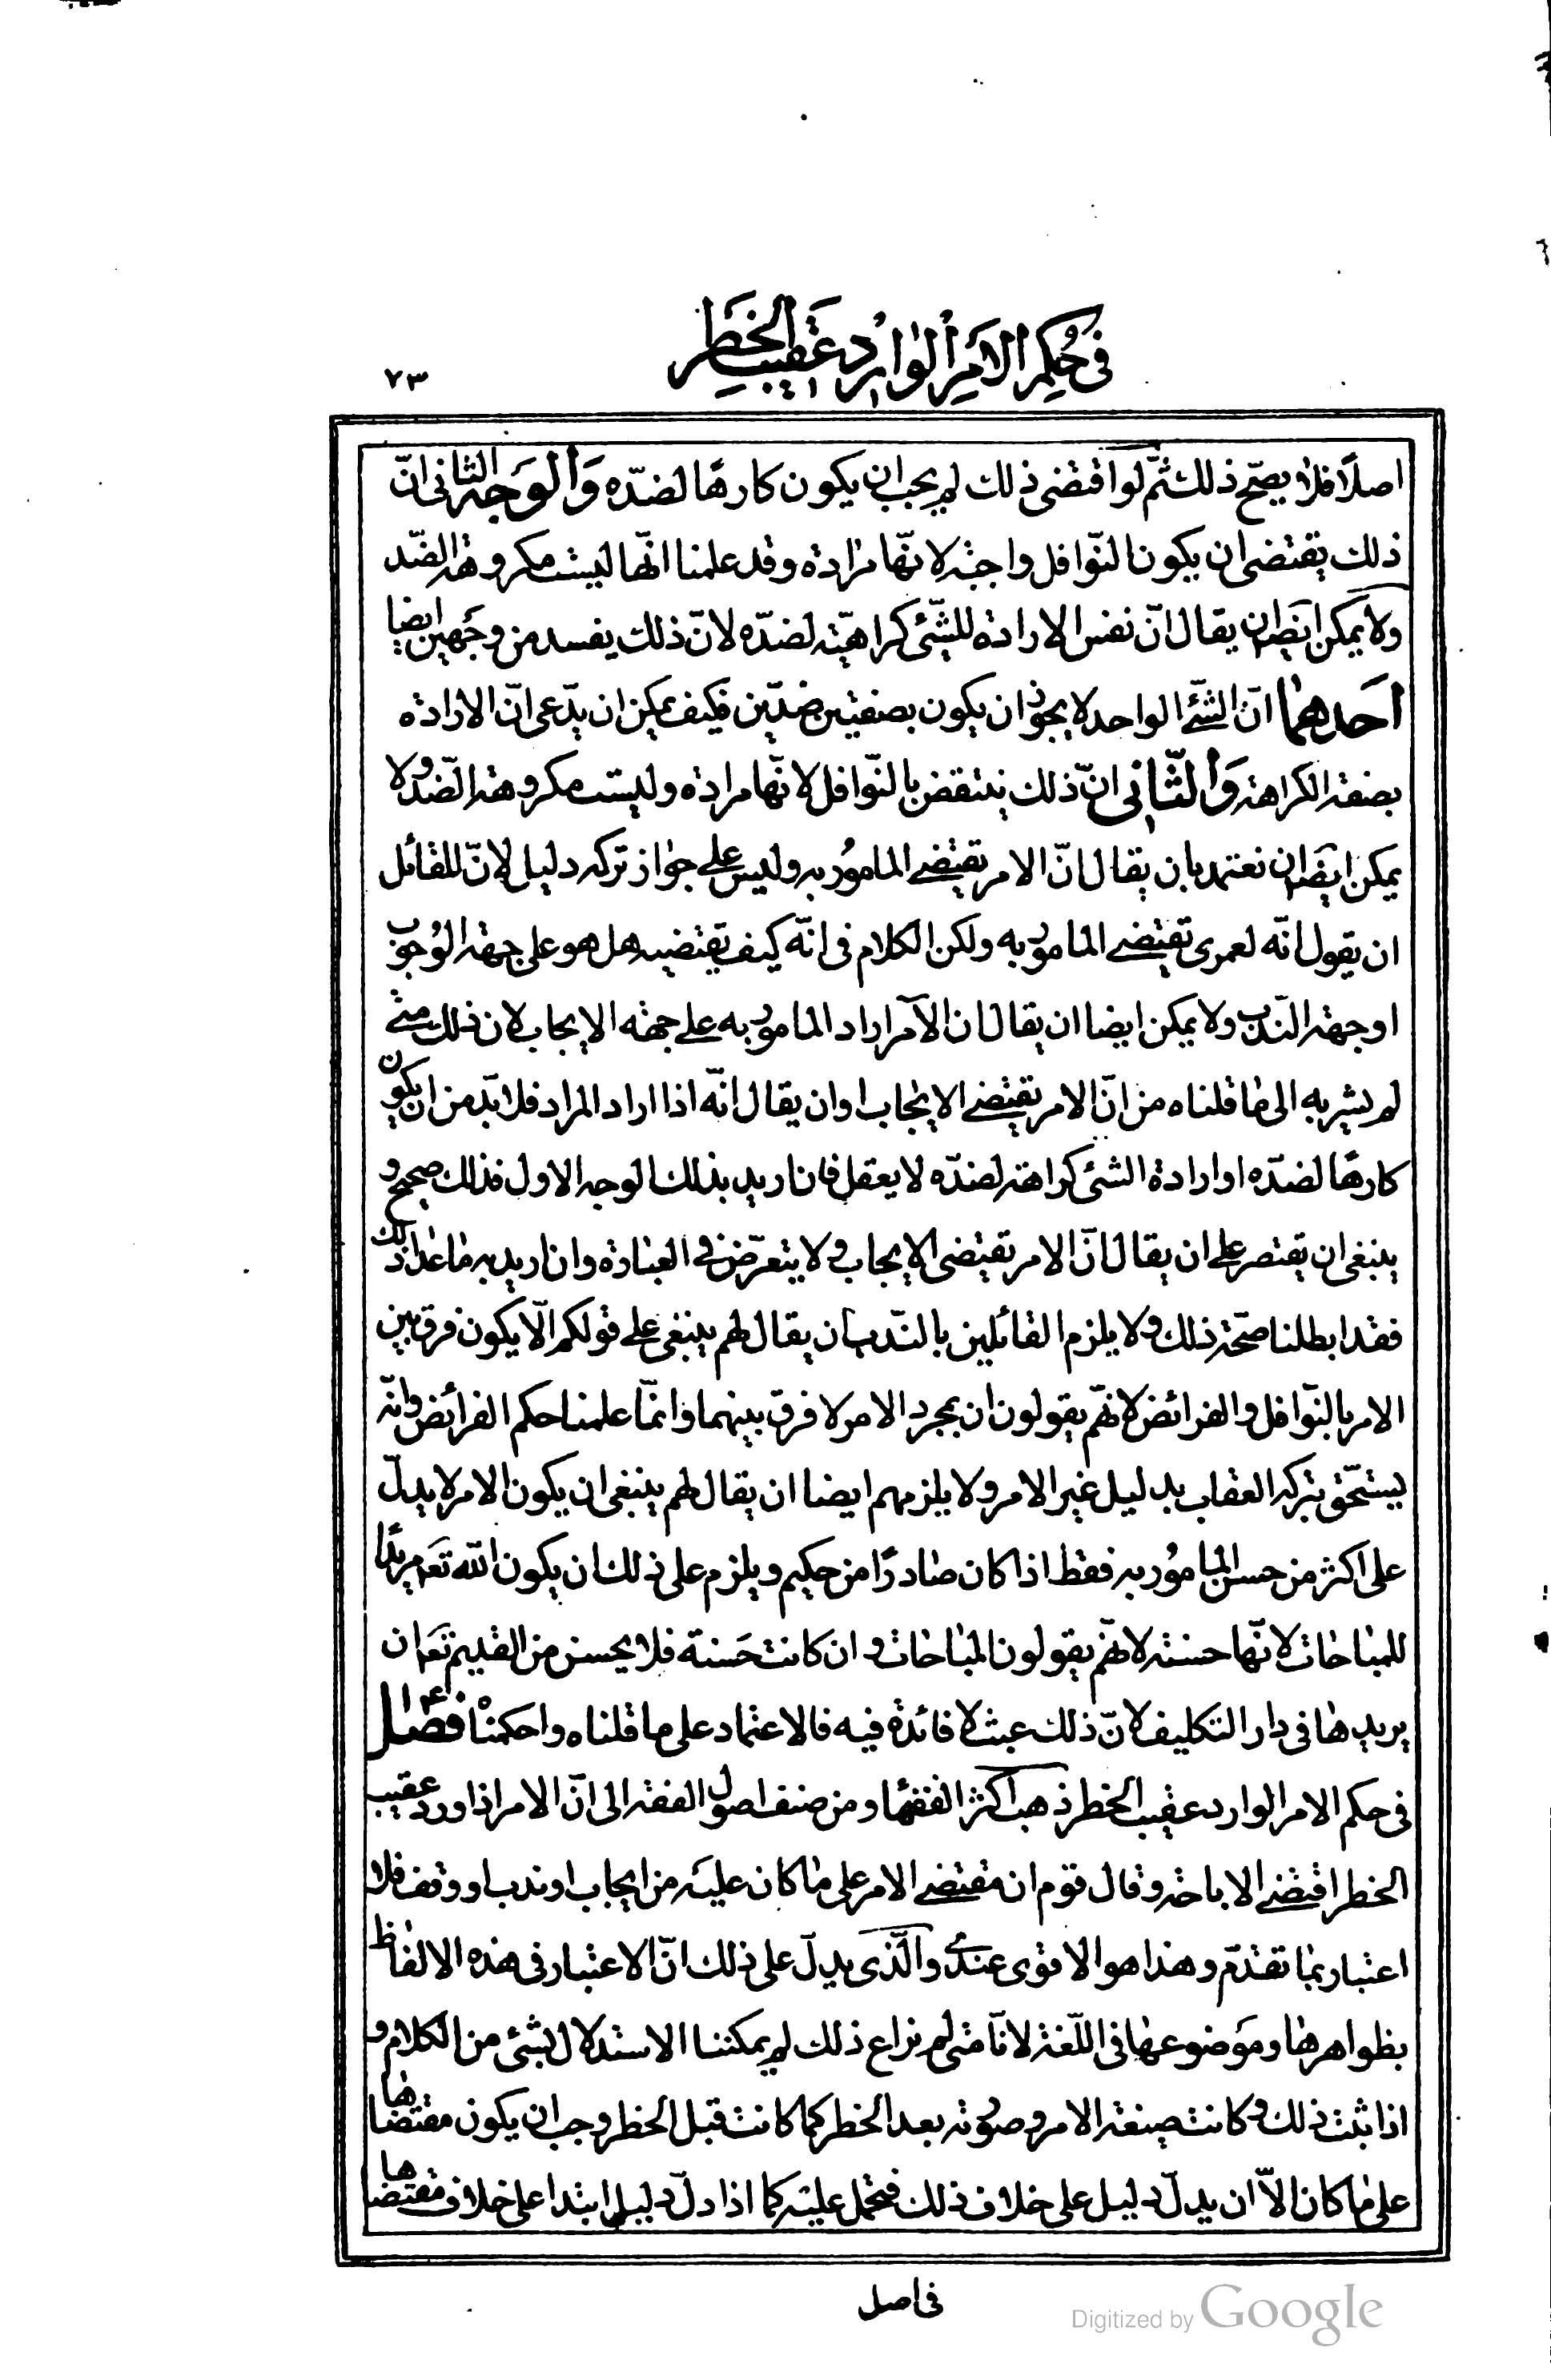 في حكم الامر الوارد عقيب الخطر
٧٣
اصلًا فلا يصحّ ذلك ثمّ لو اقتضى ذلك لم يجب ان يكون كارهًا لضدّه وَالوَجه الثانى انّ
ذلك يقتضى ان يكون النّوافل واجبة لانّها مرادة وقد علمنا انّها ليست مكروهة الضّد
ولا يمكن ايضا ان يقال انّ نفس الارادة للشّئ كراهيّته لضدّه لانّ ذلك يفسد من وجهين ايضا
احَدهمٰا انّ الشّئ الواحد لا يجوز ان يكون بصفتين ضدّين فكيف يمكن ان يدّعى انّ الارادة
بصفة الكراهة وَالثّانى انّ ذلك ينتقض بالنّوافل لانّها مرادة وليست مكروهة الضّد ولا
يمكن ايضا ان نعتمد بان يقال انّ الامر يقتضے المامُور به وليس علے جواز تركه دليل لانّ للقائل
ان يقول انّه لعمرى تقتضے المامور به ولكن الكلام فى انّه كيف يقتضيه هل هو على جهة الوُجوب
او جهة النّدب ولا يمكن ايضا ان يقال ان الآمر اراد المامور به علے جهة الايجاب لان ذلك متے
لم يشر به الى مٰا قلناه من انّ الامر يقتضے الايجاب او ان يقال انّه اذا اراد المراد فلا بدّ من ان يكون
كارهًا لضدّه او ارادة الشئى كراهة لضدّه لا يعقل فان اريد بذلك الوجه الاول فذلك صحيح و
ينبغى ان يقتصر علے ان يقال انّ الامر يقتضى الايجاب ولا يتعرّض فے العبٰادة وان اريد به مٰا عدٰا ذلك
فقد ابطلنا صحّة ذلك ولا يلزم القائلين بالنّدب ان يقال لهم ينبغى علے قولكم الّا يكون فرق بين
الامر بالنّوافل والفرائض لانّهم يقولون ان بمجرد الامر لا فرق بينهما وانّما علمنا حكم الفرائض وانّه
يستحّق بتركه العقاب بدليل غير الامر ولا يلزمهم ايضا ان يقال لهم ينبغى ان يكون الامر لا يدلّ
على اكثر من حسن المامُور به فقط اذا كان صٰادرًا من حكيم ويلزم على ذلك ان يكون الله تعَ مريدًا
للمبٰاحٰات لانّها حسنة لانّهم يقولون المبٰاحٰات وان كانت حَسنة فلا يحسن من القديم تعَ ان
يريدهٰا فى دار التكليف لانّ ذلك عبث لا فائدة فيه فالاعتماد على ما قلناه واحكمناه فصٰل
فى حكم الامر الوارد عقيب الخطر ذهب اكثر الفقهٰا ومن صنف اصول الفقه الى انّ الامر اذا ورد عقيب
الخطر اقتضے الاباحة وقال قوم ان مقتضے الامر على مٰا كان عليَه من ايجاب او ندب او وقف فلا
اعتبار بمٰا تقدّم وهذا هو الاقوى عندے والّذى يدلّ على ذلك انّ الاعتبار فى هذه الالفٰاظ
بظواهرهٰا ومَوضوعهٰا فى اللّغة لانّا متى لم نراع ذلك لم يمكننا الاستدلال بشئى من الكلام و
اذا ثبت ذلك وكانت صيغة الامر وصورته بعد الخطر كما كانت قبل الخطر وجب ان يكون مقتضاهٰا
على مٰا كان الاّ ان يدلّ دليل على خلاف ذلك فتحمل عليَه كما اذا دلّ دليل ابتدا على خلاف مقتضاها
فى اصل
Digitized by Google